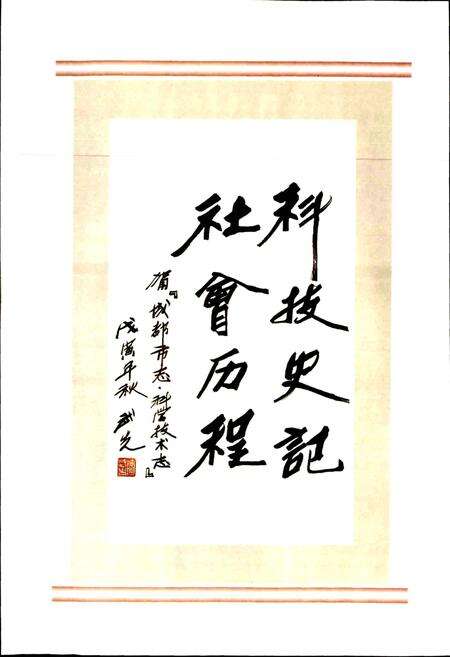 科技史記
社會历程
賀《成都市志·科学技术志》
戊寅年秋